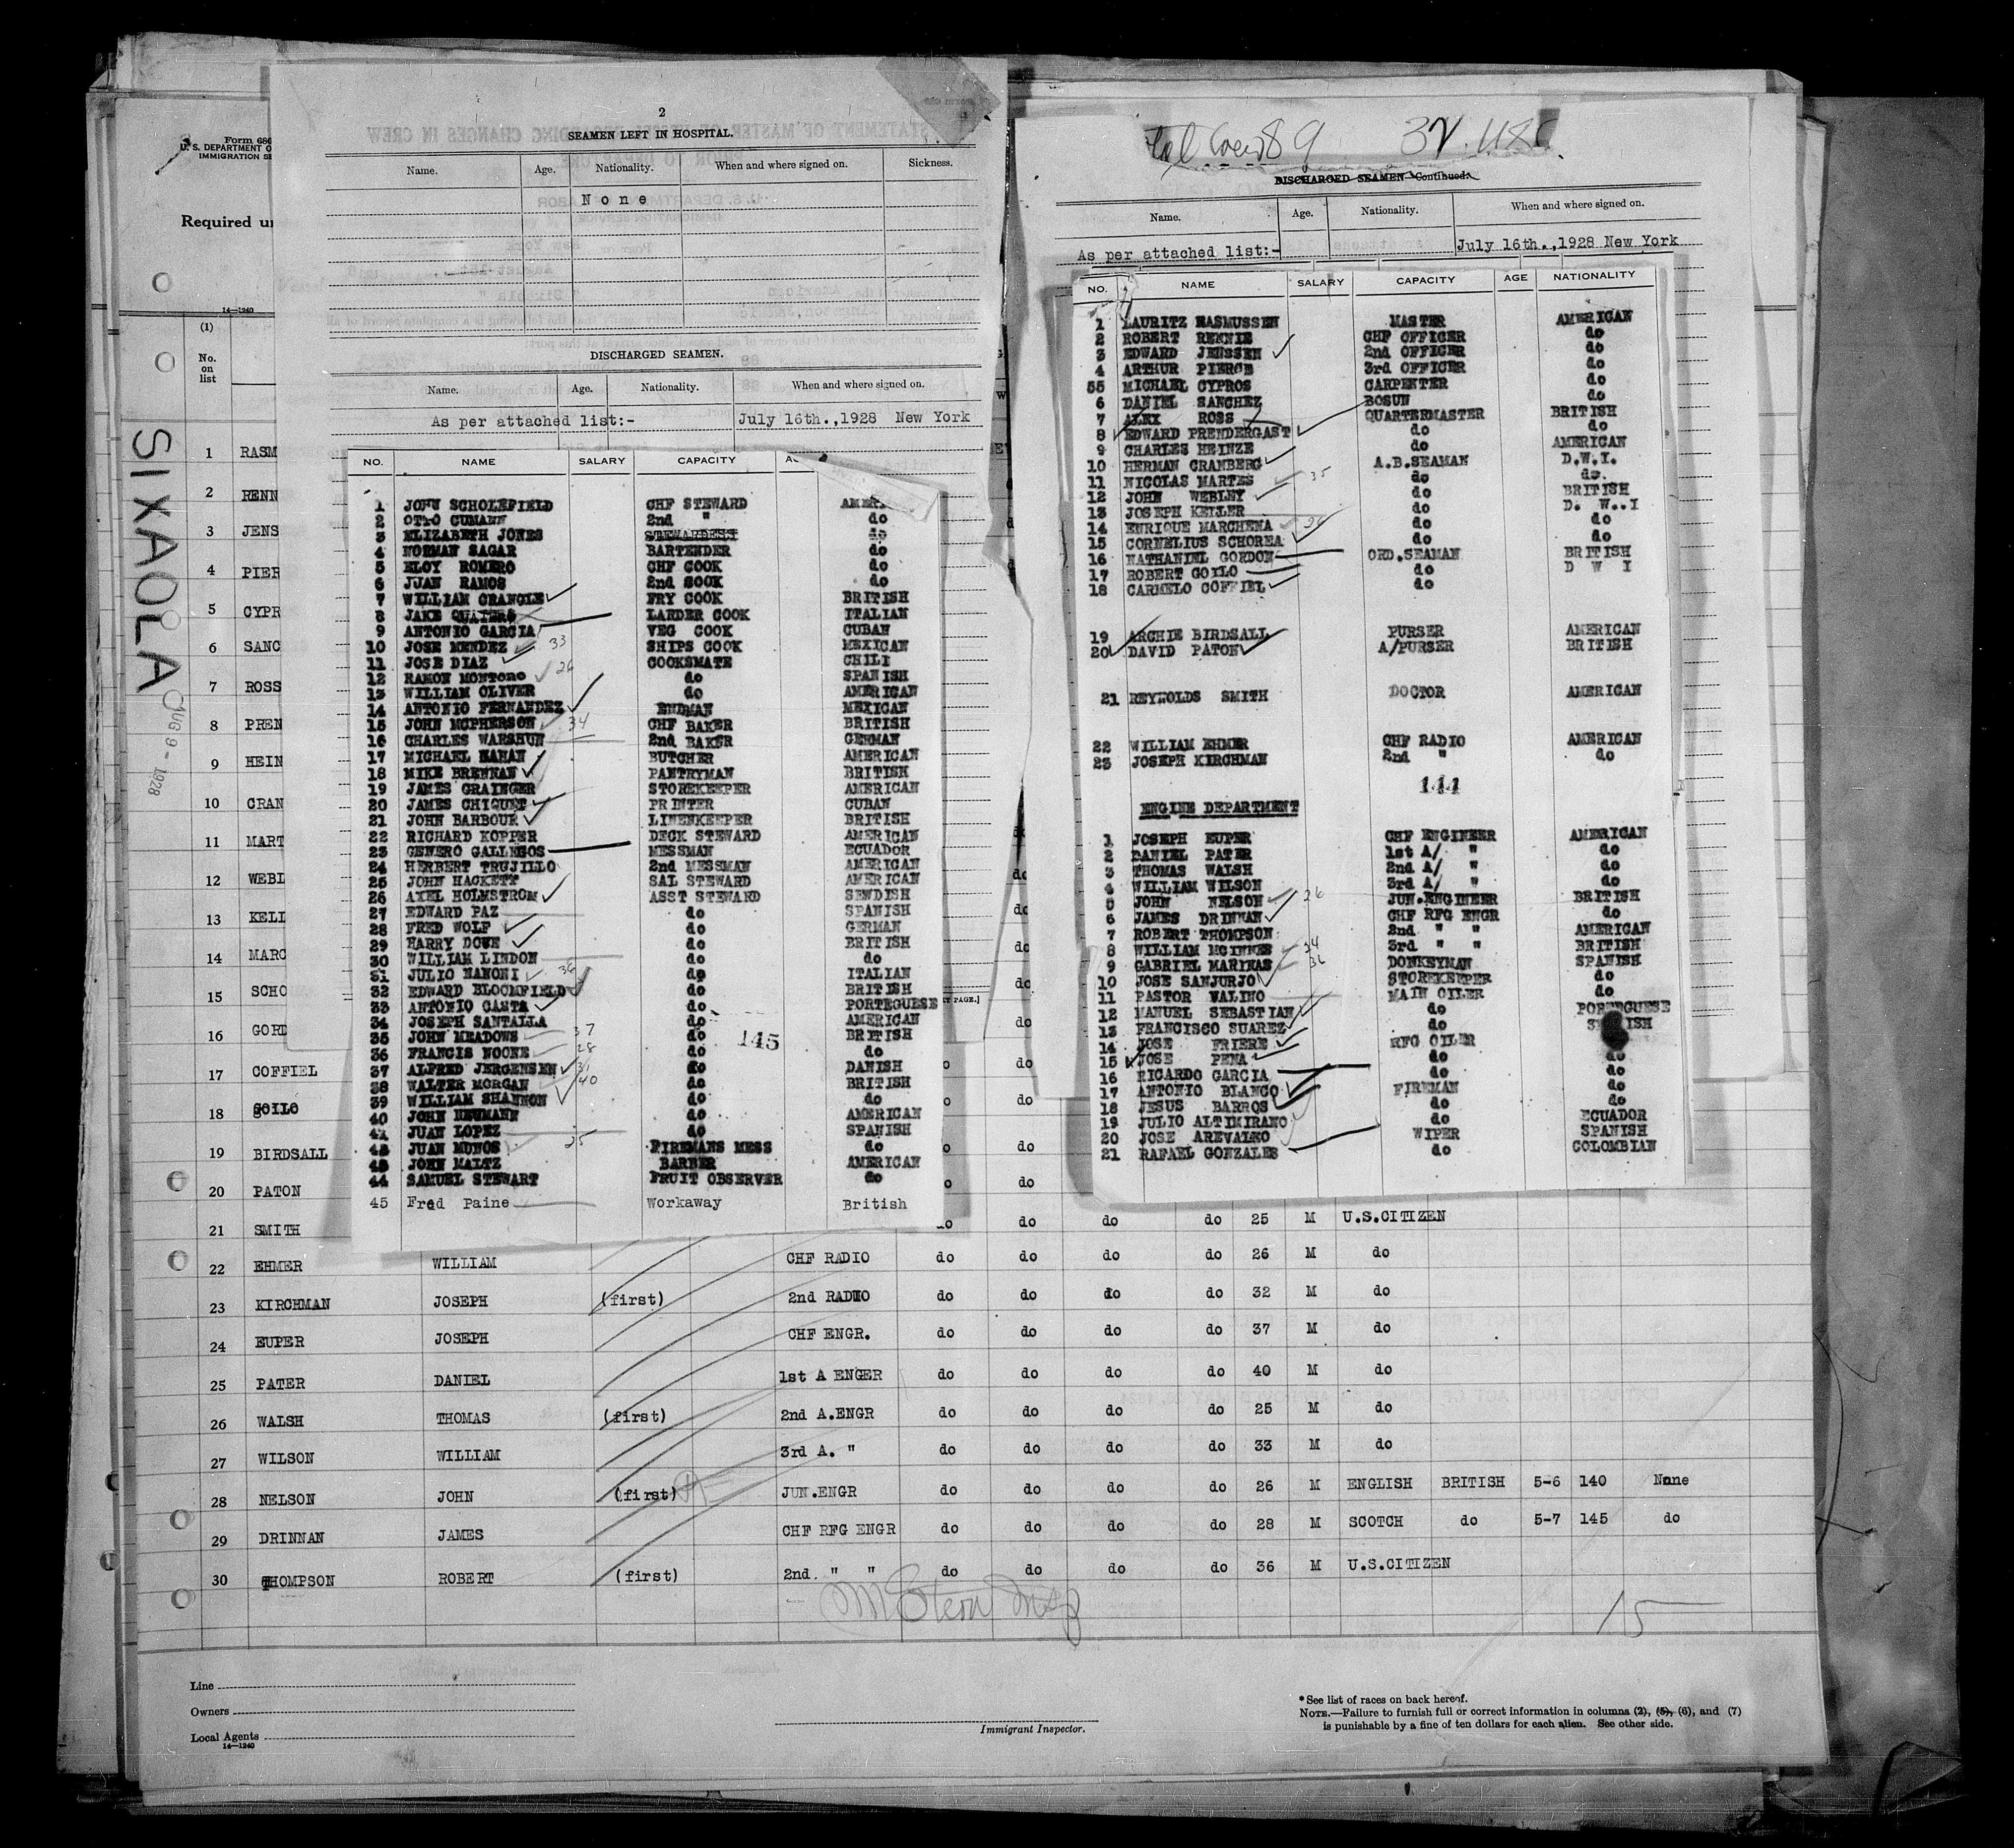 Form 680
U. S. DEPARTMENT O
IMMIGRATION SE
Required un
14—1240
(1)
No.
on
list
SIXAOLA
AUG 9 - 1928
1 RASM
2 RENN
3 JENS
4 PIER
5 CYPR
6 SANC
7 ROSS
8 PREN
9 HEIN
10 CRAN
11 MART
12 WEBL
13 KELL
14 MARC
15 SCHO
16 GORD
17 COFFIEL
18 GOILO
19 BIRDSALL
20 PATON
21 SMITH
2
SEAMEN LEFT IN HOSPITAL.
Name. Age. Nationality. When and where signed on. Sickness.
None
DISCHARGED SEAMEN.
Name. Age. Nationality. When and where signed on.
As per attached list:- July 16th.,1928 New York
NO. NAME SALARY CAPACITY
1 JOHN SCHOLEFIELD CHF STEWARD AMERI
2 OTTO CUMANN 2nd " do
3 ELIZABETH JONES STEWARDESS do
4 NORMAN SAGAR BARTENDER do
5 ELOY ROMERO CHF COOK do
6 JUAN RAMOS 2nd COOK do
7 WILLIAM CRANGLE FRY COOK BRITISH
8 JAKE QUATERS LARDER COOK ITALIAN
9 ANTONIO GARCIA VEG COOK CUBAN
10 JOSE MENDEZ 33 SHIPS COOK MEXICAN
11 JOSE DIAZ COOKSMATE CHILI
12 RAMON MONTORO 26 do SPANISH
13 WILLIAM OLIVER do AMERICAN
14 ANTONIO FERNANDEZ ENDMAN MEXICAN
15 JOHN MCPHERSON 34 CHF BAKER BRITISH
16 CHARLES WARSHUN 2nd BAKER GERMAN
17 MICHAEL MAHAN BUTCHER AMERICAN
18 MIKE BRENNAN PANTRYMAN BRITISH
19 JAMES GRAINGER STOREKEEPER AMERICAN
20 JAMES CHIQUET PRINTER CUBAN
21 JOHN BARBOUR LINENKEEPER BRITISH
22 RICHARD KOPPER DECK STEWARD AMERICAN
23 GENERO GALLEGOS MESSMAN ECUADOR
24 HERBERT TRUJILLO 2nd MESSMAN AMERICAN
25 JOHN HACKETT SAL STEWARD AMERICAN
26 AXEL HOLMSTROM ASST STEWARD SEWDISH
27 EDWARD PAZ do SPANISH
28 FRED WOLF do GERMAN
29 HARRY DOWE do BRITISH
30 WILLIAM LINDON do do
31 JULIO NANONI 36 do ITALIAN
32 EDWARD BLOOMFIELD do BRITISH
33 ANTONIO CASTA do PORTEGUESE
34 JOSEPH SANTALLA do AMERICAN
35 JOHN MEADOWS 37 do 145 BRITISH
36 FRANCIS NOONE 28 do do
37 ALFRED JERGENSEN 31 do DANISH
38 WALTER MORGAN 40 do BRITISH
39 WILLIAM SHANNON do do
40 JOHN NEUMANN do AMERICAN
41 JUAN LOPEZ do SPANISH
42 JUAN MUNOS 25 FIREMANS MESS do
43 JOHN MALTZ BARBER AMERICAN
44 SAMUEL STEWART FRUIT OBSERVER do
45 Fred Paine Workaway British
89 32 USC.
DISCHARGED SEAMEN—Continued.
Name. Age. Nationality. When and where signed on.
As per attached list:- July 16th.,1928 New York
NO. NAME SALARY CAPACITY AGE NATIONALITY
1 LAURITZ RASMUSSEN MASTER AMERICAN
2 ROBERT RENNIE CHF OFFICER do
3 EDWARD JENSSEN 2nd OFFICER do
4 ARTHUR PIERCE 3rd OFFICER do
55 MICHAEL CYPROS CARPENTER do
6 DANIEL SANCHEZ BOSUN do
7 ALEX ROSS QUARTERMASTER BRITISH
8 EDWARD PRENDERGAST do do
9 CHARLES HEINZE do AMERICAN
10 HERMAN CRANBERG A.B.SEAMAN D.W.I.
11 NICOLAS MARTES 35 do do.
12 JOHN WEBLEY do BRITISH
13 JOSEPH KELLER do D. W..I
14 ENRIQUE MARCHENA 26 do do
15 CORNELIUS SCHOREA do do
16 NATHANIEL GORDON ORD.SEAMAN BRITISH
17 ROBERT GOILO do D W I
18 CARMELO COFFIEL do
19 ARCHIE BIRDSALL PURSER AMERICAN
20 DAVID PATON A/PURSER BRITISH
21 REYNOLDS SMITH DOCTOR AMERICAN
22 WILLIAM EHMER CHF RADIO AMERICAN
23 JOSEPH KIRCHMAN 2nd " do
144
ENGINE DEPARTMENT
1 JOSEPH EUPER CHF ENGINEER AMERICAN
2 DANIEL PATER 1st A/ " do
3 THOMAS WALSH 2nd A/ " do
4 WILLIAM WILSON 3rd A/ " do
5 JOHN NELSON 26 JUN.ENGINEER BRITISH
6 JAMES DRINNAN CHF RFG ENGR do
7 ROBERT THOMPSON 2nd " " AMERICAN
8 WILLIAM MCINNES 34 3rd " " BRITISH
9 GABRIEL MARINAS 36 DONKEYMAN SPANISH
10 JOSE SANJURJO STOREKEEPER do
11 PASTOR VALINO MAIN OILER do
12 MANUEL SEBASTIAN do PORTEGUESE
13 FRANCISCO SUAREZ do ISH
14 JOSE FRIERE RFG OILER
15 JOSE PENA do do
16 RICARDO GARCIA do do
17 ANTONIO BLANCO FIREMAN do
18 JESUS BARROS do do
19 JULIO ALTIMIRANO do ECUADOR
20 JOSE AREVALEO WIPER SPANISH
21 RAFAEL GONZALES do COLOMBIAN
do do do do 25 M U.S.CITIZEN
22 EHMER WILLIAM CHF RADIO do do do do 26 M do
23 KIRCHMAN JOSEPH (first) 2nd RADIO do do do do 32 M do
24 EUPER JOSEPH CHF ENGR. do do do do 37 M do
25 PATER DANIEL 1st A ENGER do do do do 40 M do
26 WALSH THOMAS (first) 2nd A.ENGR do do do do 25 M do
27 WILSON WILLIAM 3rd A. " do do do do 33 M do
28 NELSON JOHN (first) JUN.ENGR do do do do 26 M ENGLISH BRITISH 5-6 140 None
29 DRINNAN JAMES CHF RFG ENGR do do do do 28 M SCOTCH do 5-7 145 do
30 THOMPSON ROBERT (first) 2nd. " " do do do do 36 M U.S.CITIZEN
15
Line
Owners
Local Agents
14—1240
Immigrant Inspector.
*See list of races on back hereof.
NOTE.—Failure to furnish full or correct information in columns (2), (5), (6), and (7)
is punishable by a fine of ten dollars for each alien. See other side.